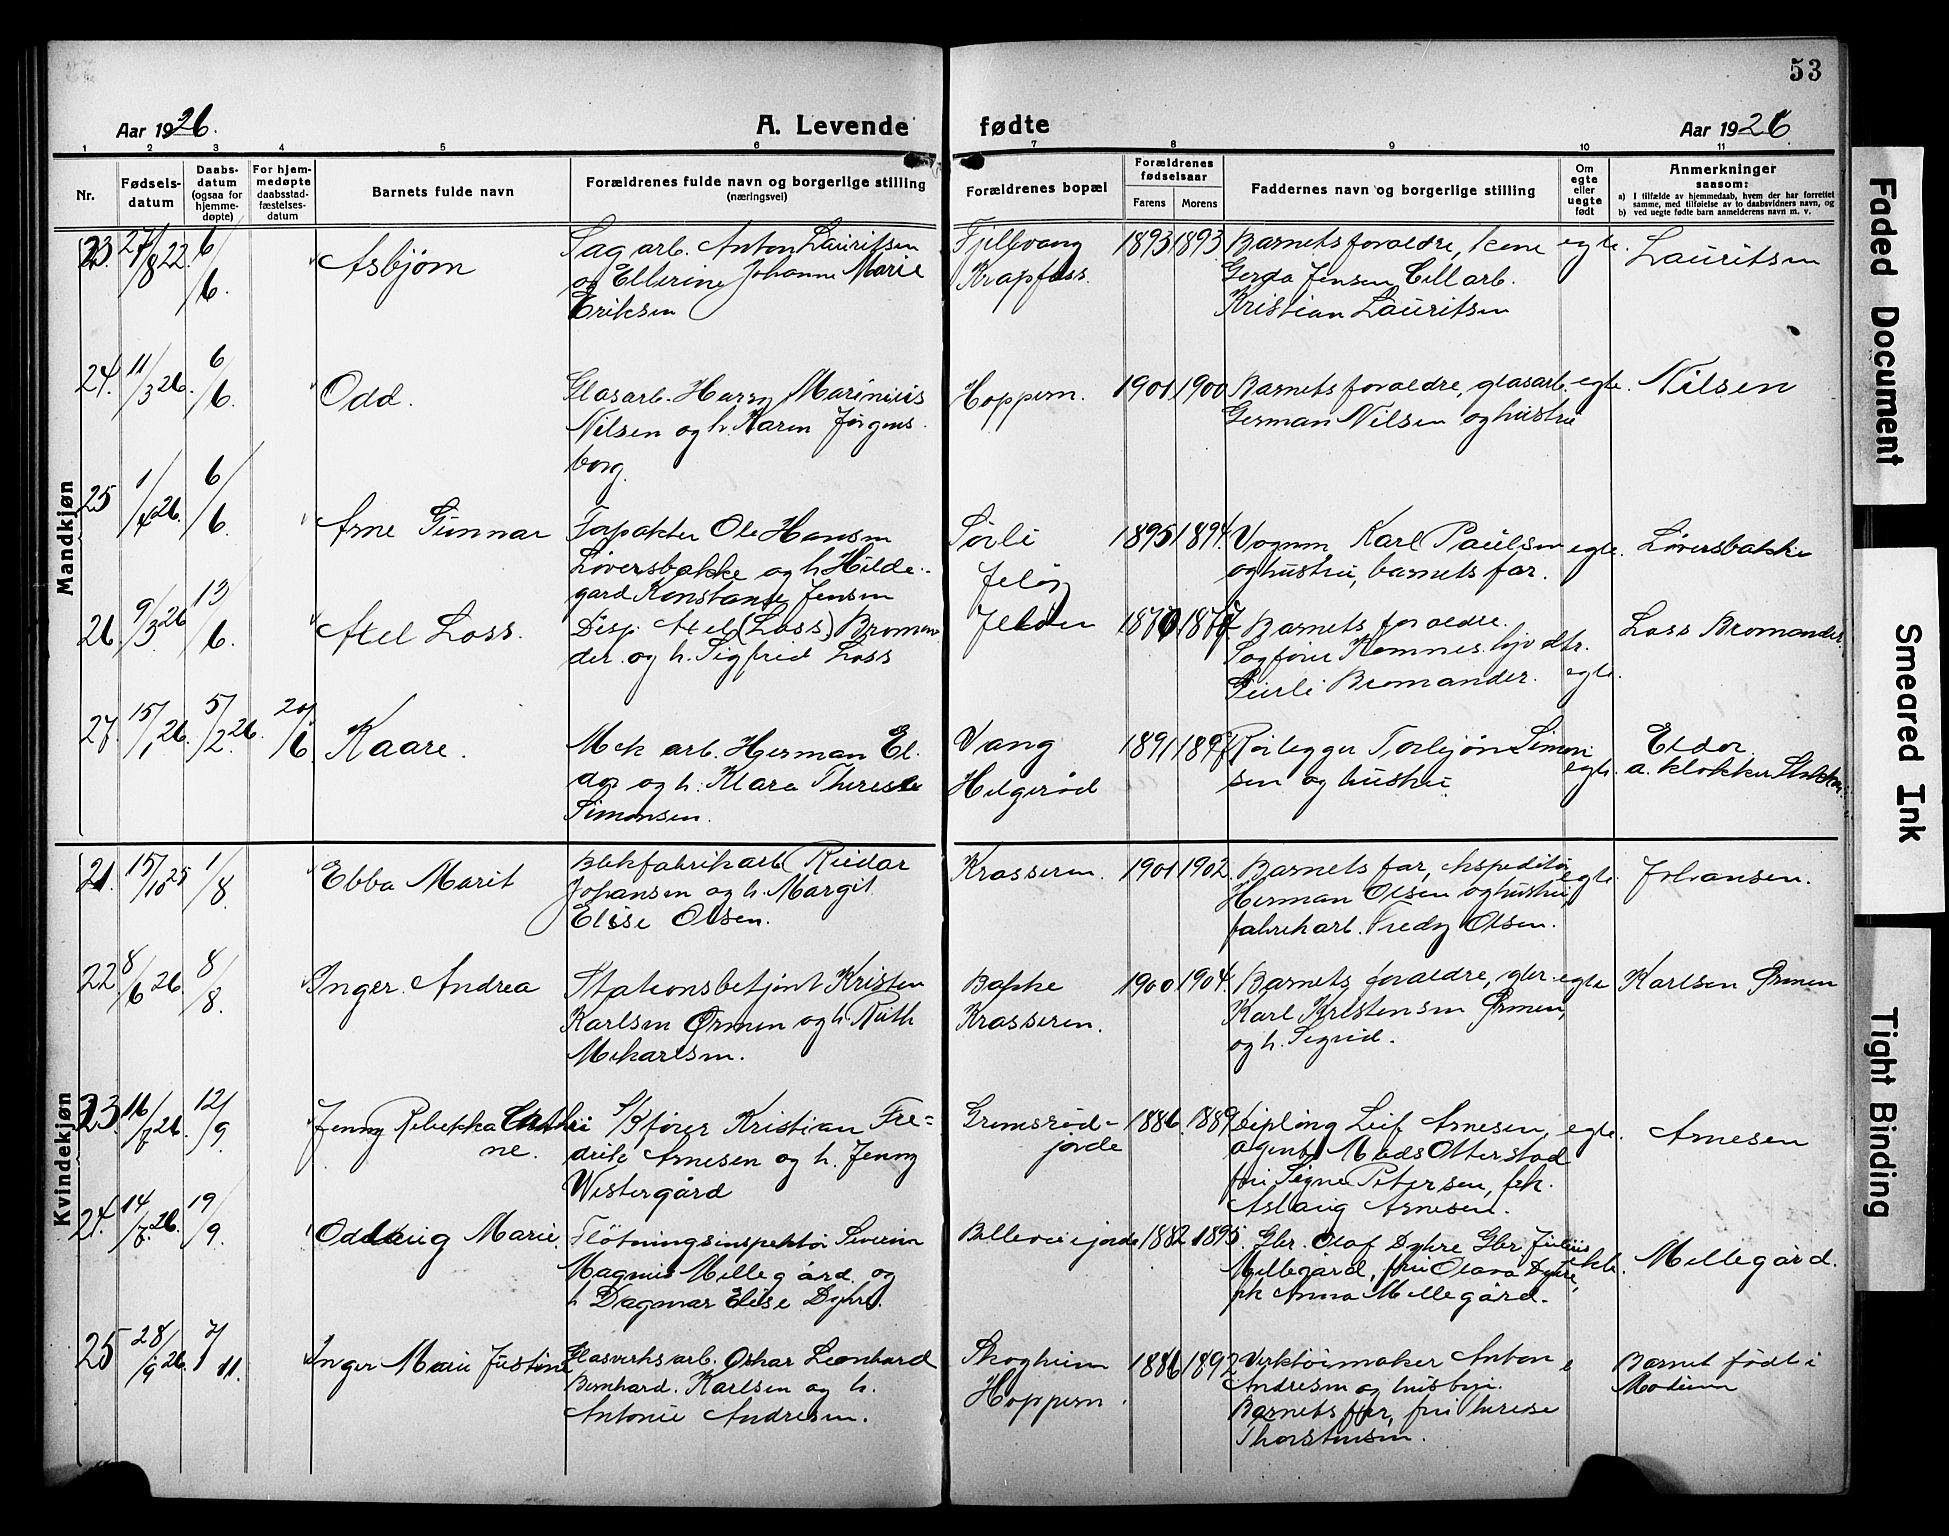 53
Aar 1926.
A. Levende
fødte
Aar 1926
1 2 3 4 5 6 7 8 9 10 11
Nr.
Fødsels-
datum
Daabs-
datum
(ogsaa for
hjemme-
døpte)
For hjem-
medøpte
daabsstad-
fæstelses-
datum
Barnets fulde navn
Forældrenes fulde navn og borgerlige stilling
(næringsvei)
Forældrenes bopæl
Forældrenes
fødselsaar
Farens
Morens
Faddernes navn og borgerlige stilling
Om
egte
eller
uegte
født
Anmerkninger
saasom:
a) I tilfælde av hjemmedaab, hvem der har forrettet
samme, med tilføielse av to daabsvidners navn, og
b) ved uegte fødte barn anmelderens navn m. v.
Mandkjøn
23. 27/8 22. 6/6. Asbjørn
Sag arb. Anton Lauritsen
og Ellerine Johanne Marie
Eriksen
Fjellvang
Krapfoss.
1893 1893
Barnets foraldre,
Gerda Jensen Cellarb.
Kristian Lauritsen
egte.
Lauritsen
24. 11/3 26. 6/6. Odd.
Glasarb. Harry Marinius
Nilsen og h. Karen Jørgens
borg.
Hoppern.
1901 1900
Barnets foraldre, glasarb.
German Nilsen og hustru
egte.
Nilsen
25 1/4 26. 6/6. Arne Gunnar
Ole Hansen
Løversbakke og h. Hilde-
gard Konstanse Jensen
Sørli
Jeløy
1895 1894.
Vognm. Karl Paulsen
og hustru, barnets far.
egte.
Løversbakke
26. 9/3 26 13/6. Axel Loss.
Disp. Axel (Loss) Broman
der. og h. Sigfred Loss
Jeløen
1870 1877
Barnets foraldre.
Sagfører
Bromander.
egte.
Loss Bromander
27. 15/1 26. 5/2. 26. 20/6 Kaare.
Mek arb. Herman El.
dor og h. Klara Therese
Simonsen.
Vang
Helgerød
1891
Rørlegger Torbjørn Simon
sen og hustru
egte.
Eldor.
a. klokker
Kvindekjøn
21. 15/10 25 1/8. Ebba Marit
Blekfabrikarb. Reidar
Johansen og h. Margit
Elise Olsen.
Krasseren.
1901 1902.
Barnets far, ekspeditør
Herman Olsen og hustru,
fabrikarb. Fredy Olsen.
egte.
Johansen.
22 8/6 26. 8/8. Inger Andrea
Stationsbetjent Kristen
Karlsen Ørmen og h. Ruth
Mikarlsen.
Bakke
Krasseren.
1900 1904.
Barnets foraldre, gbr.
Karl Kristensen Ørmen,
og h. Sigrid.
egte
Karlsen Ørmen
23. 16/7 26. 12/9 Jenny Rebekka Cathri
ne.
Skfører Kristian Fre=
drik Arnesen og h. Jenny
Westergård
Gremsrød-
jorde
1886. 1889
Dipling Leif Arnesen,
agent Mads Otterstad
fru Signe Petersen, frk.
Aslaug Arnesen.
egte.
Arnesen
24. 14/7. 26. 19/9. Oddlaug Marie.
Fløtningsinspektør Severin
Magnus Millegård og
h. Dagmar Elise Dyhre.
Bellevuejorde
1882 1895.
Gbr. Olaf Dyhre Gbr. Julius
Millegård, fru Olava Dyhre,
frk Anna Millegård.
ekte.
Millegård.
25 28/9 26. 7/11. Inger Marie Justine
Glasverksarb. Oskar Leonhard
Bernhard. Karlsen og h.
Antonie Andresen.
Skogheim
Hoppern.
1886 1892
Verktøimaker Anton
Andresen og hustru.
Barnets far, fru Therese
Thorstensen.
e
Barnet født i
Modum
Faded Document
Smeared Ink
Tight Binding